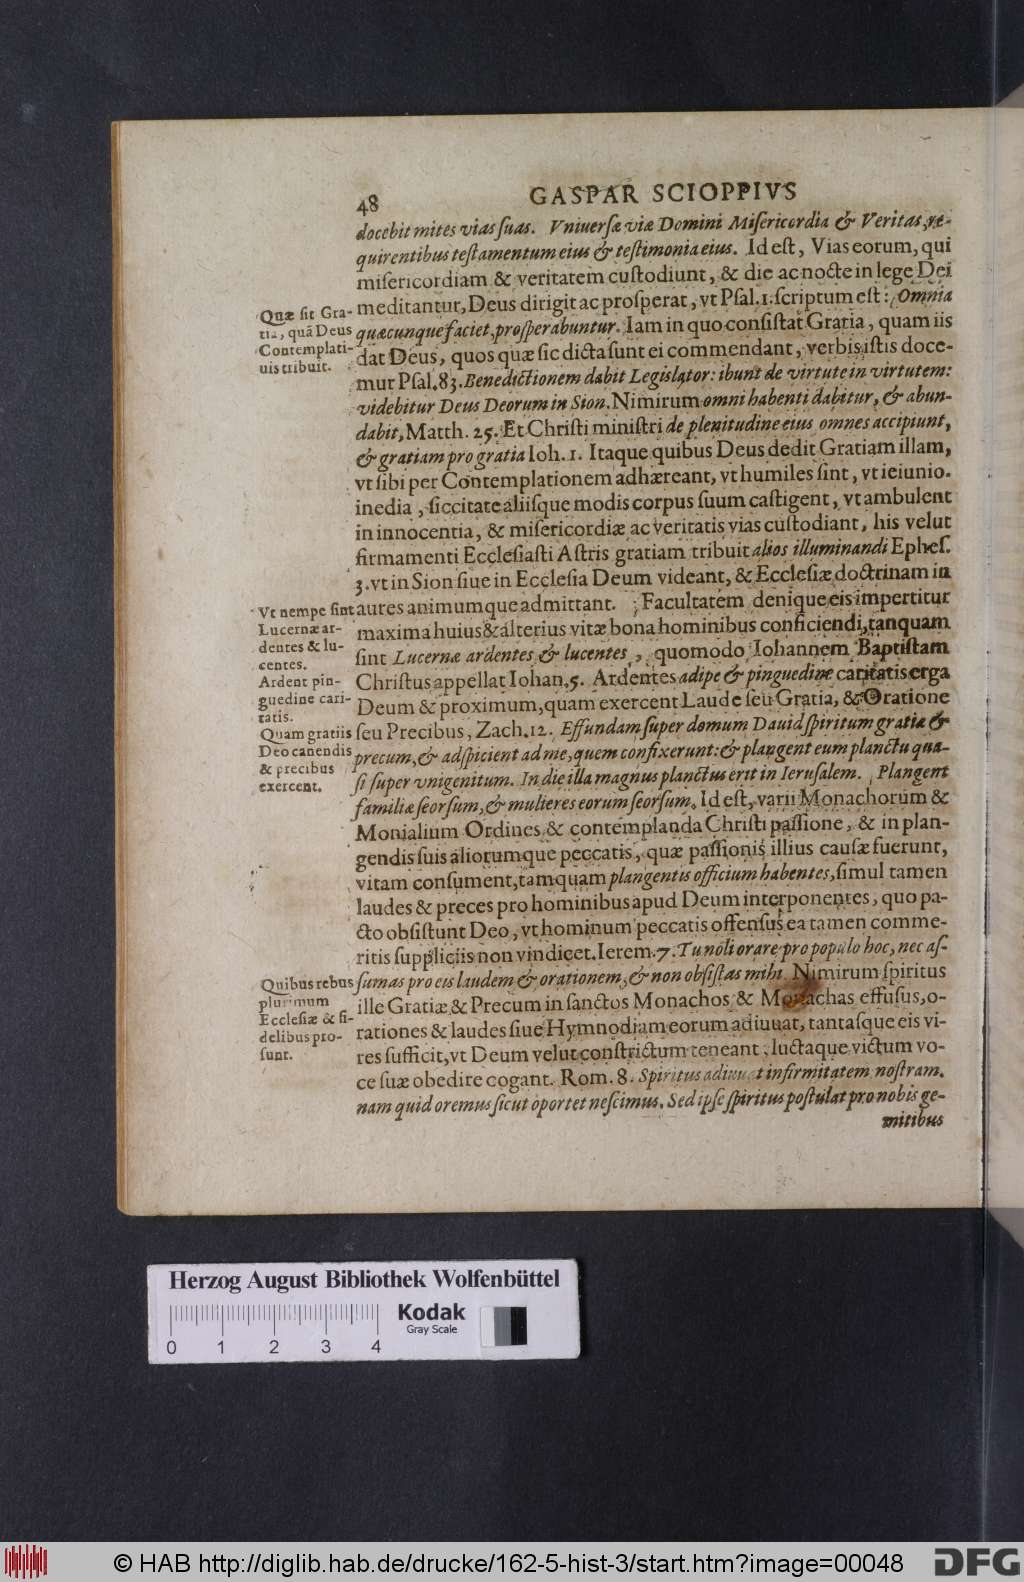 48
GASPAR SCIOPPIVS
docebit mites vias suas. Vniuersæ viæ Domini Misericordia & Veritas, re-
quirentibus testamentum eius & testimonia eius. Id est, Vias eorum, qui
misericordiam & veritatem custodiunt, & die ac nocte in lege Dei
meditantur, Deus dirigit ac prosperat, vt Psal. 1. scriptum est: Omnia
quæcunque faciet, prosperabuntur. Iam in quo consistat Gratia, quam iis
dat Deus, quos quæ sic dicta sunt ei commendant, verbis istis doce-
mur Psal. 83. Benedictionem dabit Legislator: ibunt de virtute in virtutem:
videbitur Deus Deorum in Sion. Nimirum omni habenti dabitur, & abun-
dabit, Matth. 25. Et Christi ministri de plenitudine eius omnes accipiunt,
& gratiam pro gratia Ioh. 1. Itaque quibus Deus dedit Gratiam illam,
vt sibi per Contemplationem adhæreant, vt humiles sint, vt ieiunio.
inedia, siccitate aliisque modis corpus suum castigent, vt ambulent
in innocentia, & misericordiæ ac veritatis vias custodiant, his velut
firmamenti Ecclesiasti Astris gratiam tribuit alios illuminandi Ephes.
3. vt in Sion siue in Ecclesia Deum videant, & Ecclesiæ doctrinam in
aures animumque admittant. Facultatem denique eis impertitur
maxima huius & alterius vitæ bona hominibus conficiendi, tanquam
sint Lucernæ ardentes & lucentes, quomodo Iohannem Baptistam
Christus appellat Iohan. 5. Ardentes adipe & pinguedine caritatis erga
Deum & proximum, quam exercent Laude seu Gratia, & Oratione
seu Precibus, Zach. 12. Effundam super domum Dauid spiritum gratiæ &
precum, & adspicient ad me, quem confixerunt: & plangent eum planctu qua-
si super vnigenitum. In die illa magnus planctus erit in Ierusalem. Plangent
familiæ seorsum, & mulieres eorum seorsum. Id est, varii Monachorum &
Monialium Ordines & contemplanda Christi passione, & in plan-
gendis suis aliorumque peccatis, quæ passionis illius causæ fuerunt,
vitam consument, tamquam plangentis officium habentes, simul tamen
laudes & preces pro hominibus apud Deum interponentes, quo pa-
cto obsistunt Deo, vt hominum peccatis offensus ea tamen comme-
ritis suppliciis non vindicet. Ierem. 7. Tu noli orare pro populo hoc, nec as-
sumas pro eis laudem & orationem, & non obsistas mihi. Nimirum spiritus
ille Gratiæ & Precum in sanctos Monachos & Monachas effusus, o-
rationes & laudes siue Hymnodiam eorum adiuuat, tantasque eis vi-
res sufficit, vt Deum velut constrictum teneant, luctaque victum vo-
ce suæ obedire cogant. Rom. 8. Spiritus adiuuat infirmitatem nostram.
nam quid oremus sicut oportet nescimus. Sed ipse spiritus postulat pro nobis ge-
mitibus
Quæ sit Gra-
tia, quã Deus
Contemplati-
uis tribuit.
Vt nempe sint
Lucernæ ar-
dentes & lu-
centes.
Ardent pin-
guedine cari-
tatis.
Quam gratiis
Deo canendis
& precibus
exercent.
Quibus rebus
plurimum
Ecclesiæ & fi-
delibus pro-
sunt.
Herzog August Bibliothek Wolfenbüttel
Kodak
Gray Scale
0 1 2 3 4
© HAB http://diglib.hab.de/drucke/162-5-hist-3/start.htm?image=00048
DFG